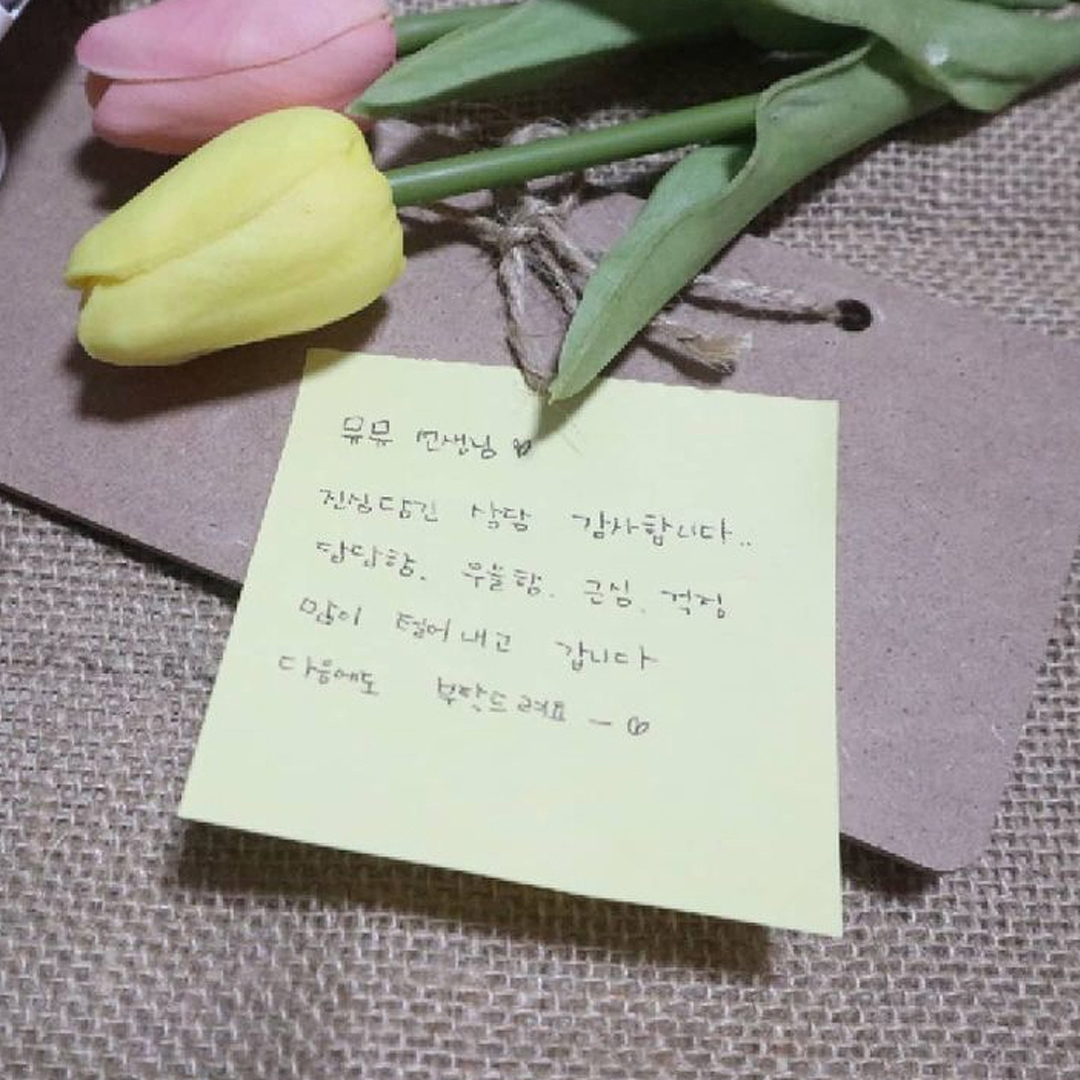 뮤뮤 선생님 ♡
진심담긴 상담 감사합니다..
답답함. 우울함. 근심. 걱정
많이 털어내고 갑니다
다음에도 부탁드려요 – ♡